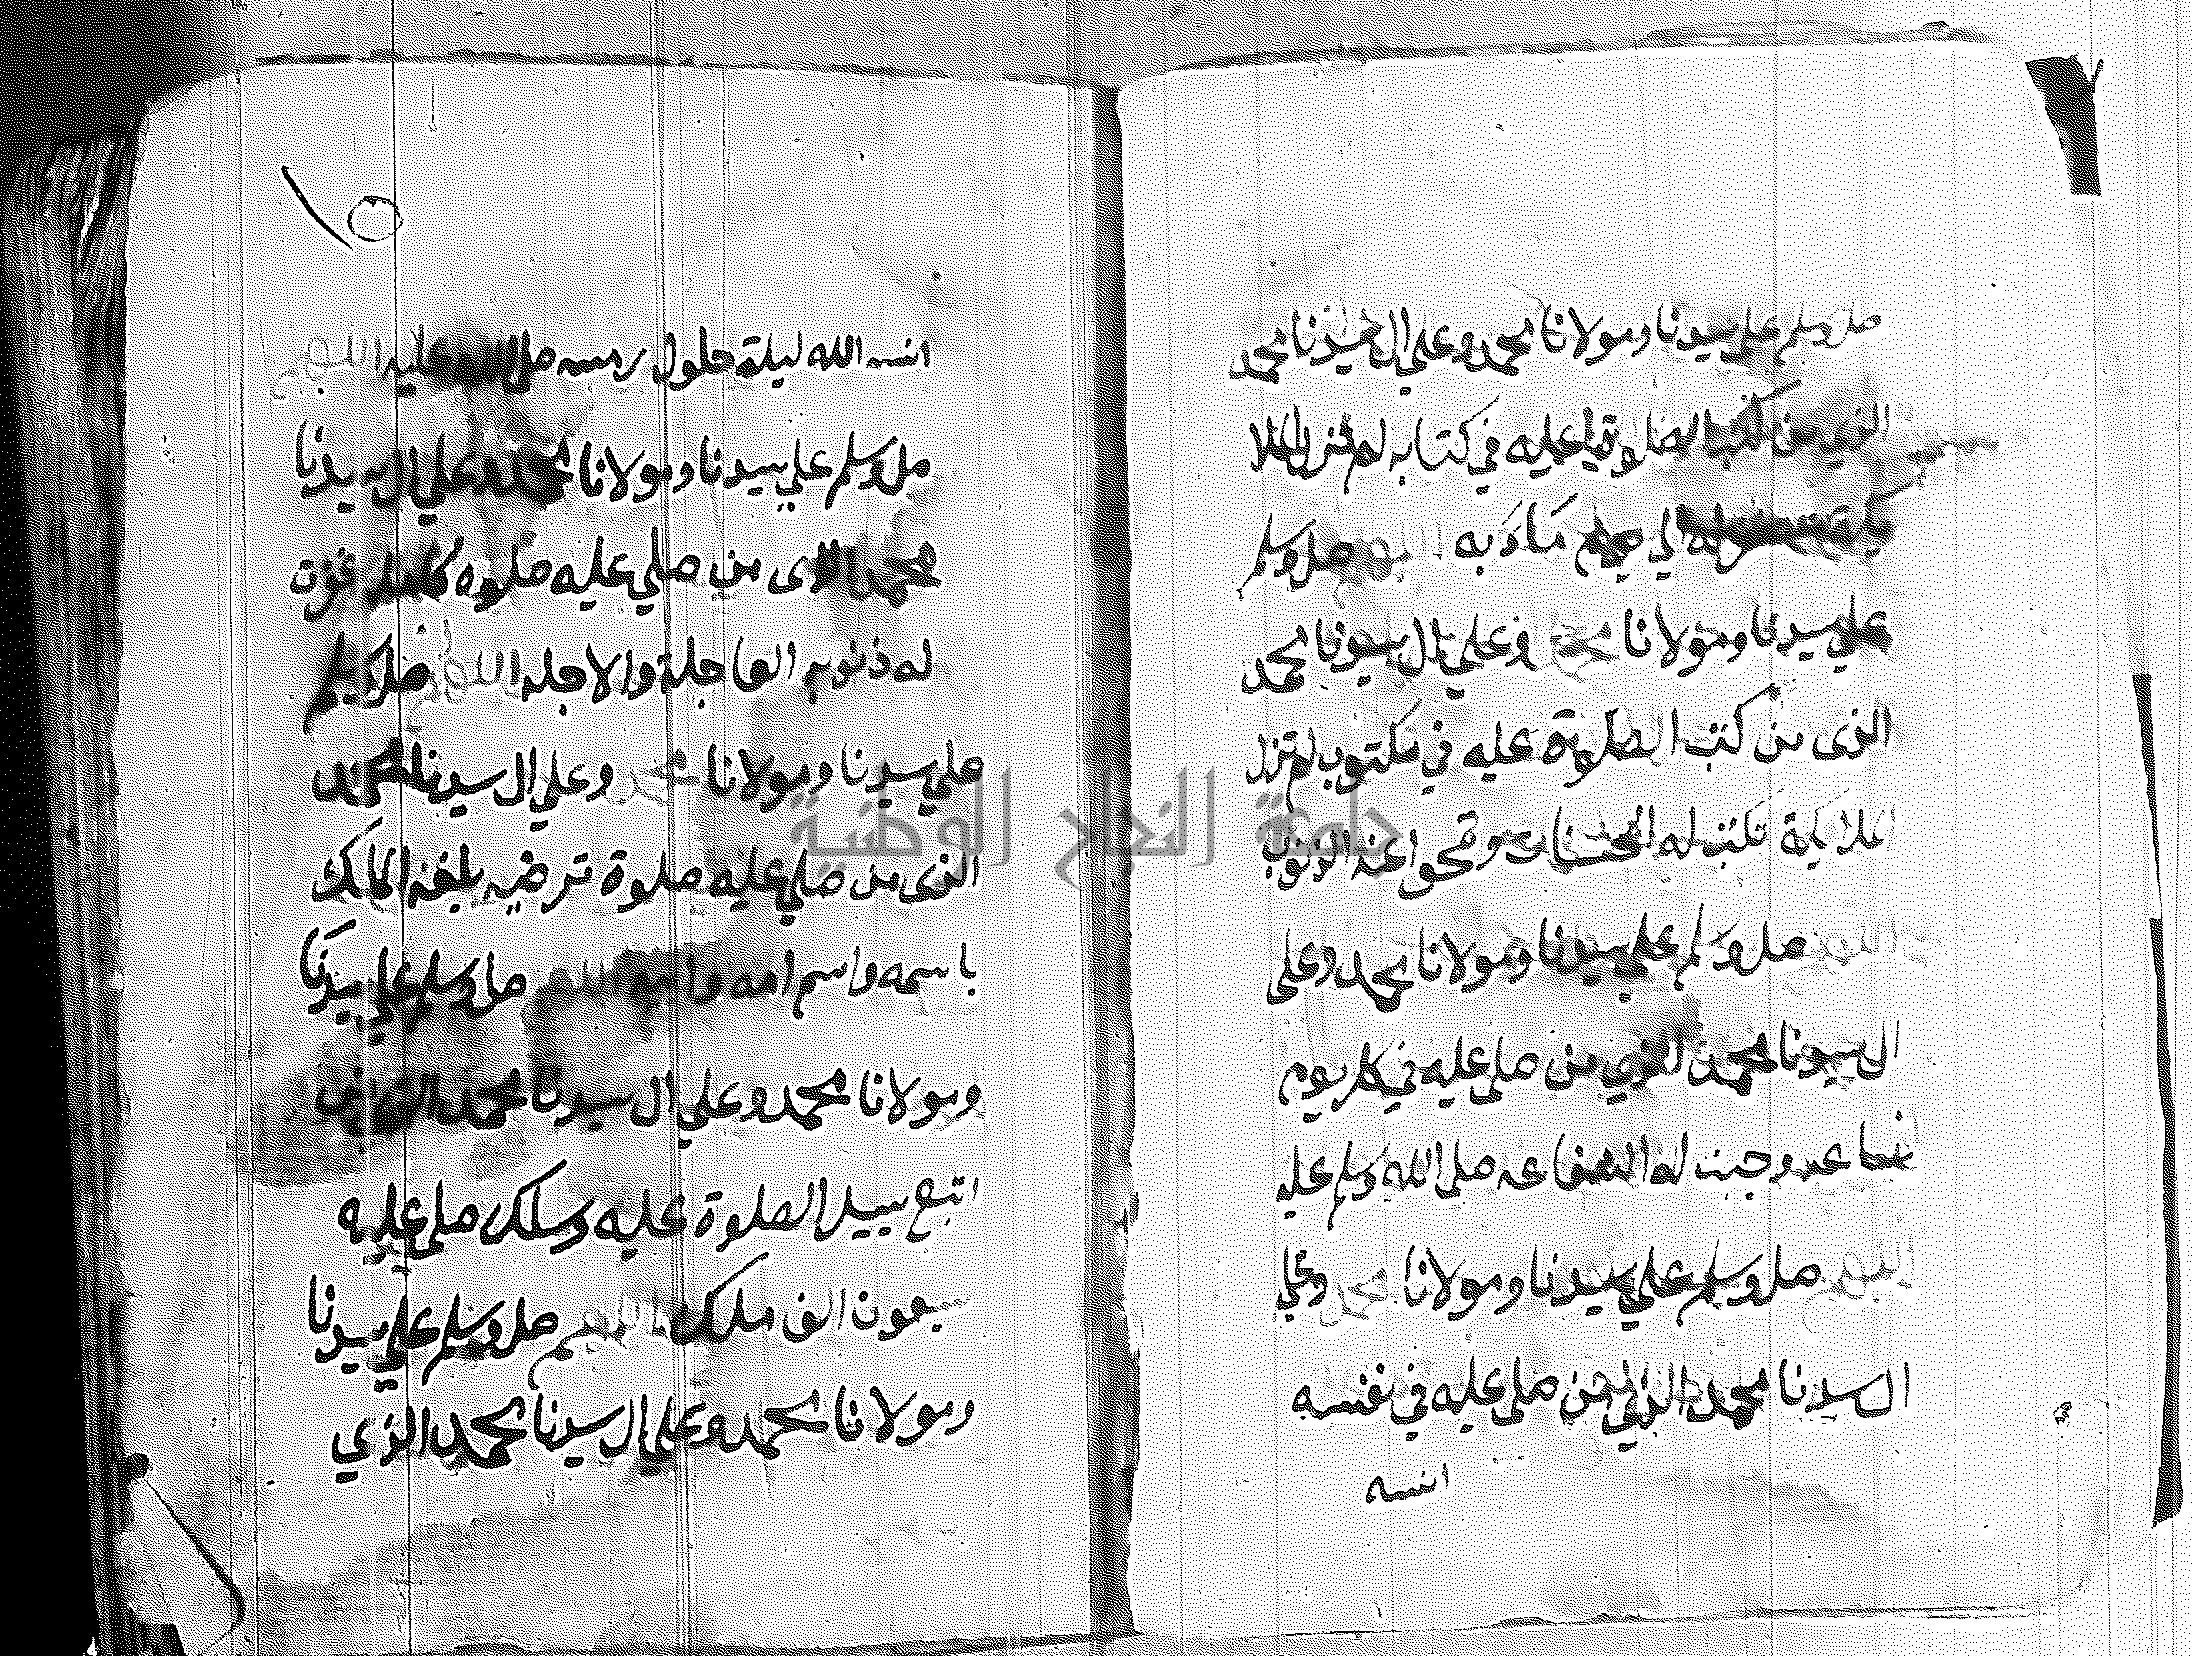 صل وسلم علي سيدنا ومولانا محمد وعلي ال سيدنا محمد
الذي من كتب الصلوة عليه في كتاب لم تزل الملا
صل وسلم
علي سيدنا ومولانا محمد وعلي ال سيدنا محمد
الذي من كتب الصلوة عليه في مكتوب لم تزل
الملائكة تكتب له الحسنات وتمحوا عنه الذنوب
اللهم صل وسلم علي سيدنا ومولانا محمد وعلي
ال سيدنا محمد الذي من صلي عليه في كل يوم
وجبت له الشفاعه صلي الله وسلم عليه
اللهم صل وسلم علي سيدنا ومولانا محمد وعلي
ال سيدنا محمد الذي من صلي عليه في نفسه
انسه
انسه الله ليلة حلول رمسه صلي الله عليه اللهم
صل وسلم علي سيدنا ومولانا محمد وعلي ال سيدنا
محمد الذي من صلي عليه صلوه
له ذنوبه العاجلة والاجله اللهم صل وسلم
علي سيدنا ومولانا محمد وعلي ال سيدنا محمد
الذي من صلي عليه صلوة
باسمه واسم صل وسلم علي سيدنا
ومولانا محمد وعلي ال سيدنا محمد الذي من
اتبع سبيل الصلوة عليه وسلك صلي عليه
سبعون الف ملك اللهم صل وسلم علي سيدنا
ومولانا محمد وعلي ال سيدنا محمد الذي
جامعة النجاح الوطنية